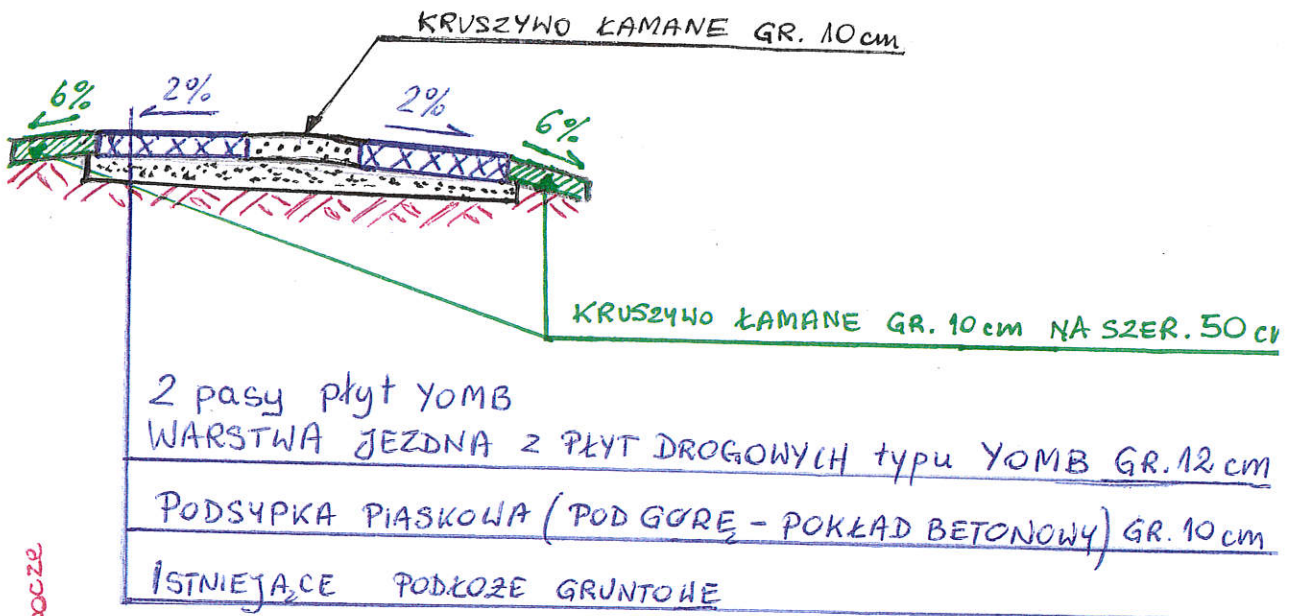 KRUSZYWO ŁAMANE GR. 10 cm
6% 2% 2% 6%
KRUSZYWO ŁAMANE GR. 10 cm NA SZER. 50 c
2 pasy płyt YOMB
WARSTWA JEZDNA Z PŁYT DROGOWYCH typu YOMB GR. 12 cm
PODSYPKA PIASKOWA (POD GÓRĘ - POKŁAD BETONOWY) GR. 10 cm
ISTNIEJĄCE PODŁOŻE GRUNTOWE